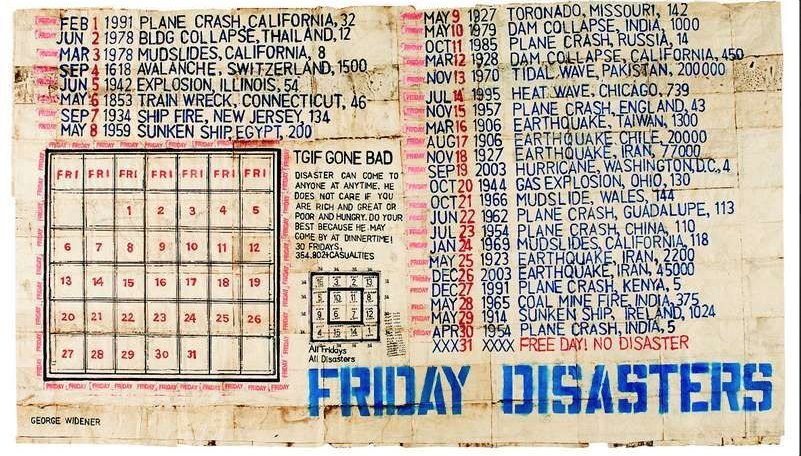 FEB 1 1991 PLANE CRASH, CALIFORNIA, 32
JUN 2 1978 BLDG COLLAPSE, THAILAND, 12
MAR 3 1978 MUDSLIDES, CALIFORNIA, 8
SEP 4 1618 AVALANCHE, SWITZERLAND, 1500
JUN 5 1942 EXPLOSION, ILLINOIS, 54
MAY 6 1853 TRAIN WRECK, CONNECTICUT, 46
SEP 7 1934 SHIP FIRE, NEW JERSEY, 134
MAY 8 1959 SUNKEN SHIP, EGYPT, 200
FRI FRI FRI FRI FRI FRI FRI
1 2 3 4 5
6 7 8 9 10 11 12
13 14 15 16 17 18 19
20 21 22 23 24 25 26
27 28 29 30 31
TGIF GONE BAD
DISASTER CAN COME TO
ANYONE AT ANYTIME. HE
DOES NOT CARE IF YOU
ARE RICH AND GREAT OR
POOR AND HUNGRY. DO YOUR
BEST BECAUSE HE MAY
COME BY AT DINNERTIME!
30 FRIDAYS,
354,802 CASUALTIES
All Fridays
All Disasters
MAY 9 1927 TORONADO, MISSOURI, 142
MAY 10 1979 DAM COLLAPSE, INDIA, 1000
OCT 11 1985 PLANE CRASH, RUSSIA, 14
MAR 12 1928 DAM COLLAPSE, CALIFORNIA, 450
NOV 13 1970 TIDAL WAVE, PAKISTAN, 200000
JUL 14 1995 HEAT WAVE, CHICAGO, 739
NOV 15 1957 PLANE CRASH, ENGLAND, 43
MAR 16 1906 EARTHQUAKE, TAIWAN, 1300
AUG 17 1906 EARTHQUAKE CHILE, 20000
NOV 18 1927 EARTHQUAKE, IRAN, 77000
SEP 19 2003 HURRICANE, WASHINGTON,D.C., 4
OCT 20 1944 GAS EXPLOSION, OHIO, 130
OCT 21 1966 MUDSLIDE, WALES, 144
JUN 22 1962 PLANE CRASH, GUADALUPE, 113
JUL 23 1954 PLANE CRASH, CHINA, 110
JAN 24 1969 MUDSLIDES, CALIFORNIA, 118
MAY 25 1923 EARTHQUAKE, IRAN, 2200
DEC 26 2003 EARTHQUAKE, IRAN, 45000
DEC 27 1991 PLANE CRASH, KENYA, 5
MAY 28 1965 COAL MINE FIRE, INDIA, 375
MAY 29 1914 SUNKEN SHIP, IRELAND, 1024
APR 30 1954 PLANE CRASH, INDIA, 5
XXX 31 XXXX FREE DAY! NO DISASTER
FRIDAY DISASTERS
GEORGE WIDENER